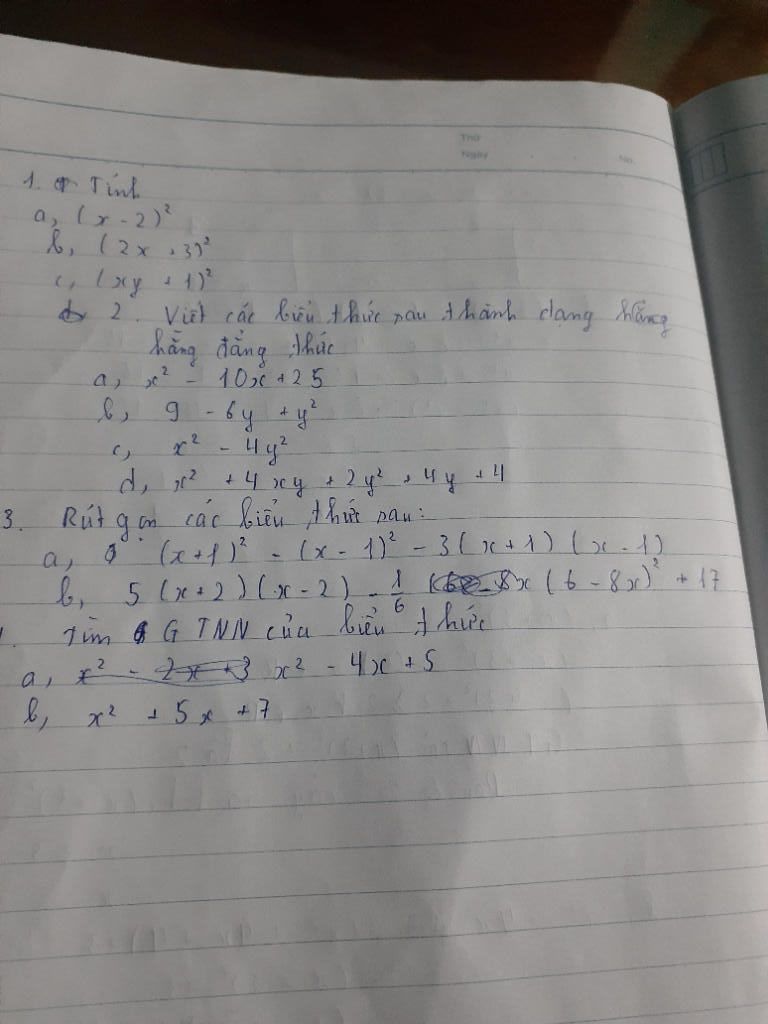 Thứ
Ngày
No.
1. Tính
a, (x - 2)²
b, (2x + 3)²
c, (xy + 1)²
2. Viết các biểu thức sau thành dạng hằng
hằng đẳng thức
a, x² - 10x + 25
b, 9 - 6y + y²
c, x² - 4y²
d, x² + 4xy + 2y² + 4y + 4
3. Rút gọn các biểu thức sau:
a, (x+1)² - (x - 1)² - 3(x+1)(x - 1)
b, 5(x+2)(x - 2) - 1/6 (6 - 8x)² + 17
Tìm GTNN của biểu thức
a, x² - 4x + 5
b, x² + 5x + 7